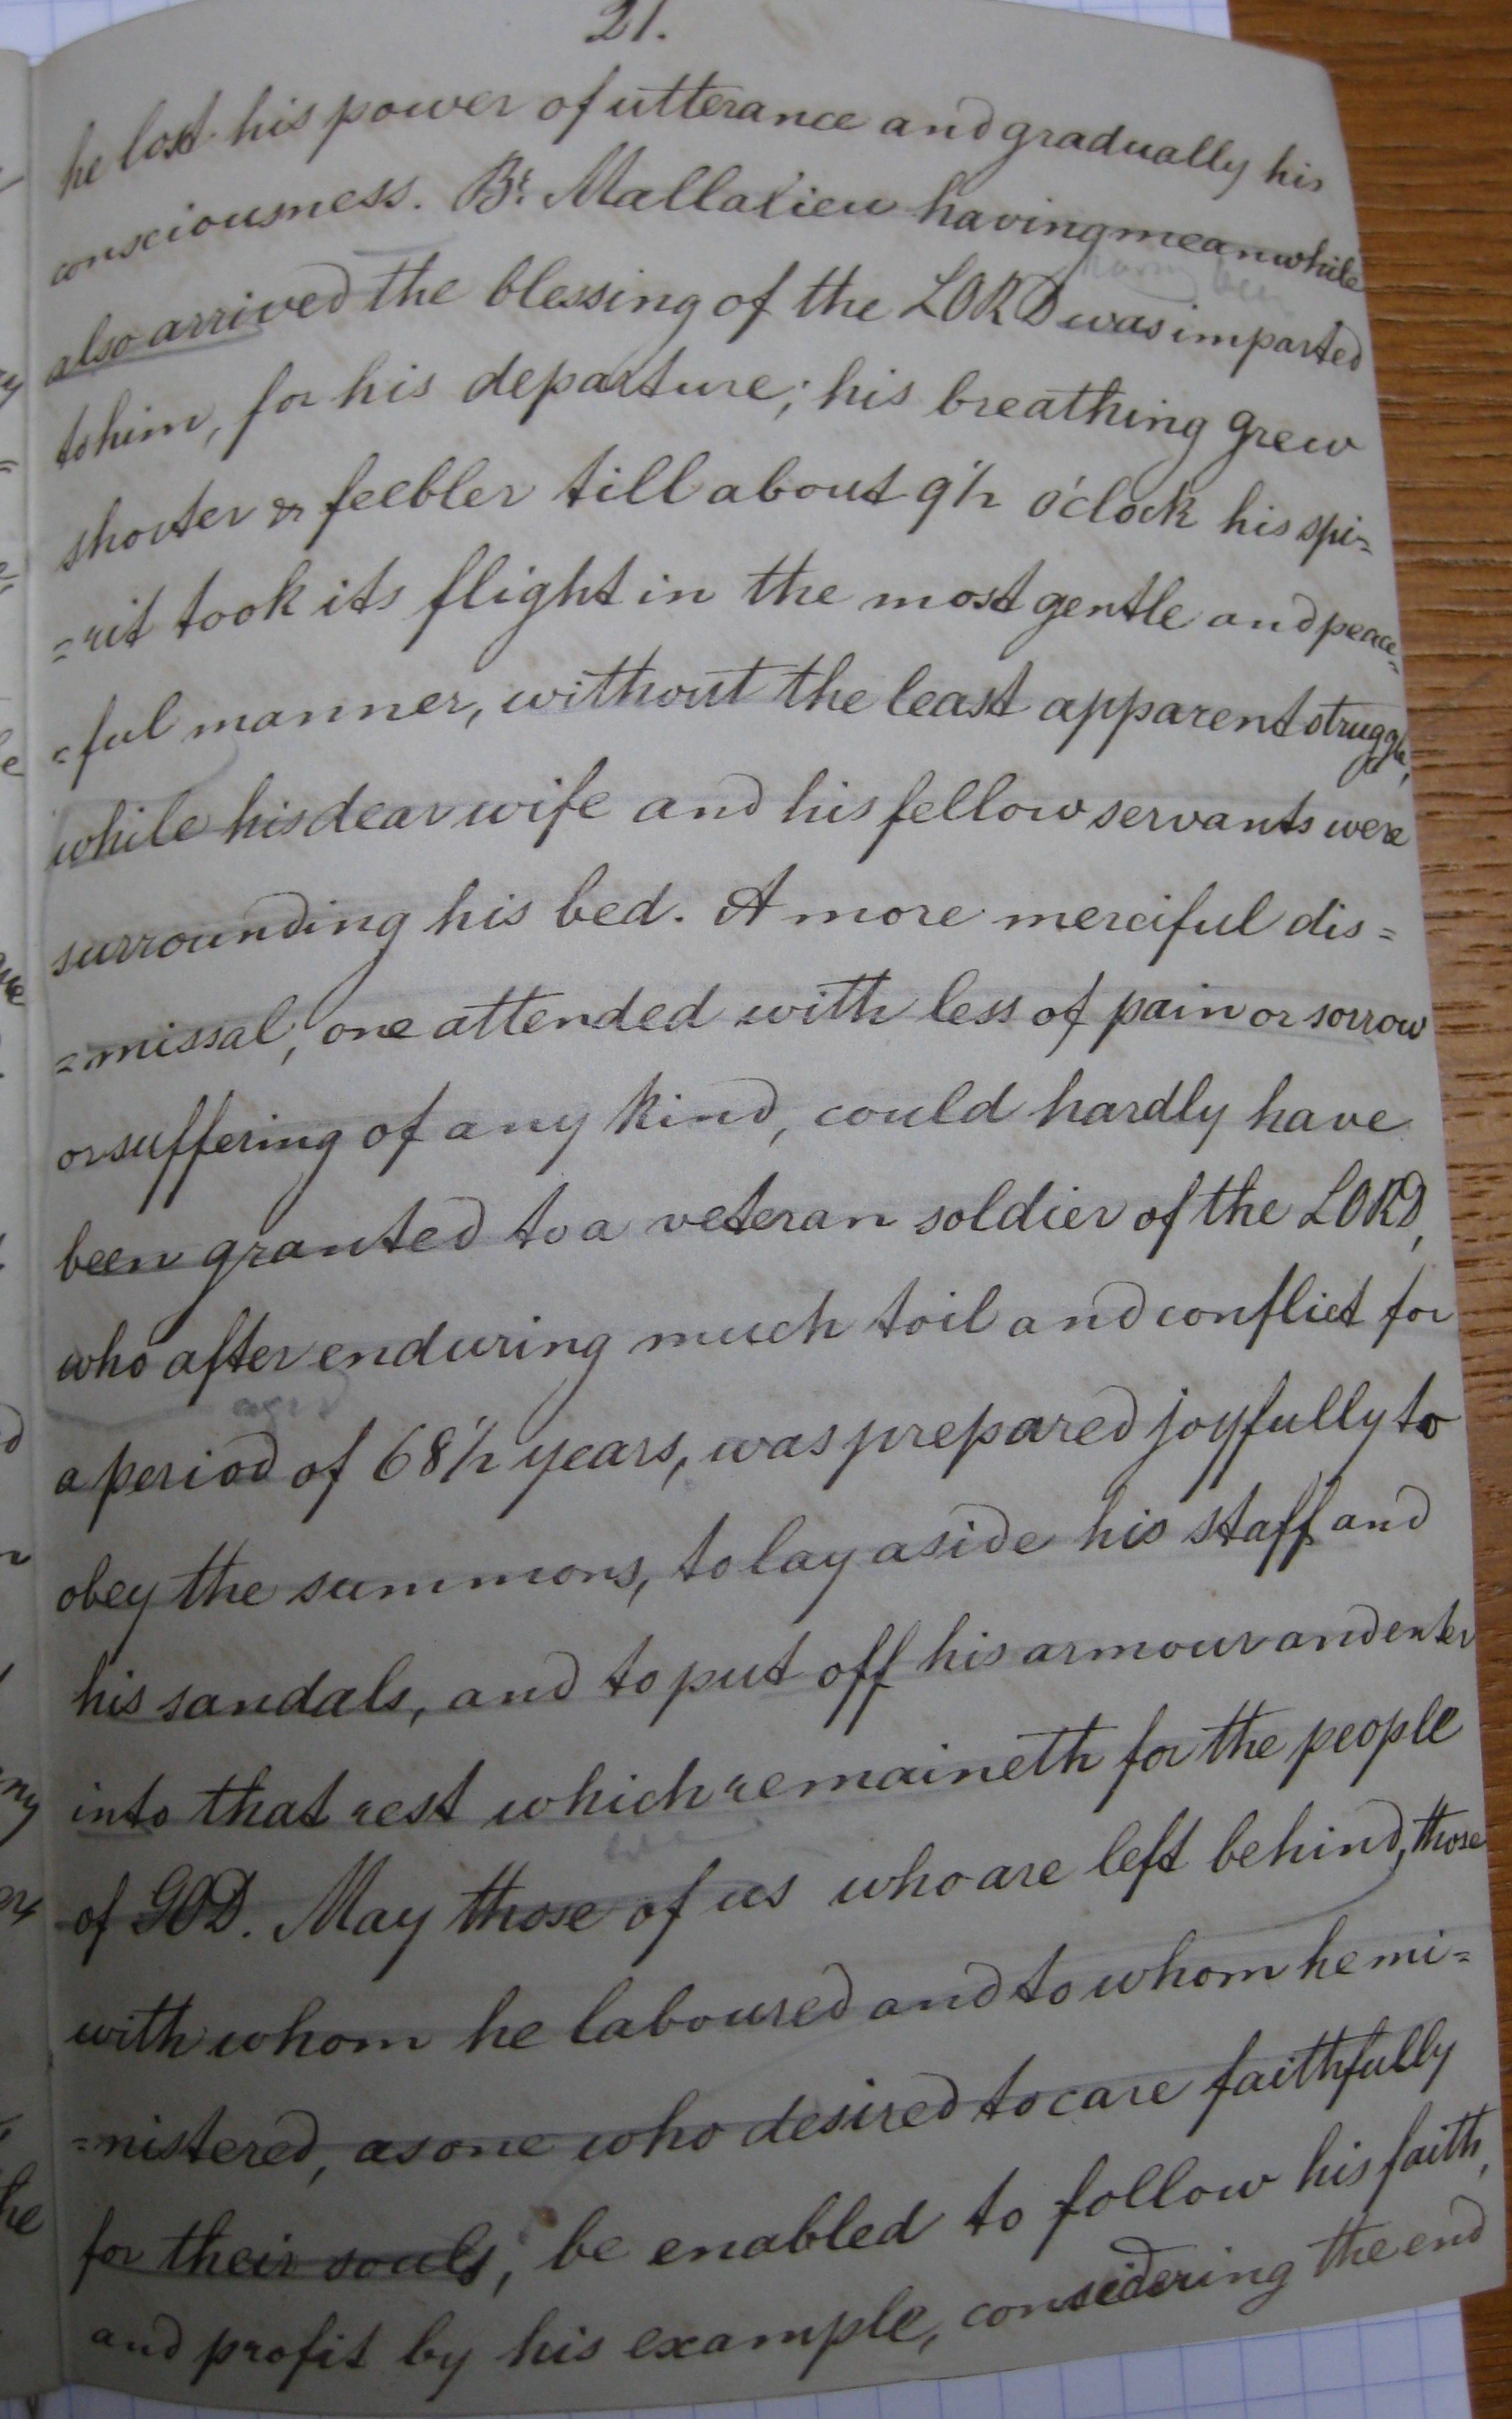 21.
he lost his power of utterance and gradually his
consciousness. Br. Mallalieu having meanwhile
having been
also arrived the blessing of the LORD was imparted
to him, for his departure; his breathing grew
shorter & feebler till about 9½ o'clock his spi=
=rit took its flight in the most gentle and peace=
=ful manner, without the least apparent struggle,
while his dear wife and his fellow servants were
surrounding his bed. A more merciful dis=
=missal, one attended with less of pain or sorrow
or suffering of any kind, could hardly have
been granted to a veteran soldier of the LORD,
who after enduring much toil and conflict for
aged
a period of 68½ years, was prepared joyfully to
obey the summons, to lay aside his staff and
his sandals, and to put off his armour and enter
into that rest which remaineth for the people
of GOD. May those of us who are left behind, those
with whom he laboured and to whom he mi=
=nistered, as one who desired to care faithfully
for their souls, be enabled to follow his faith,
and profit by his example, considering the end